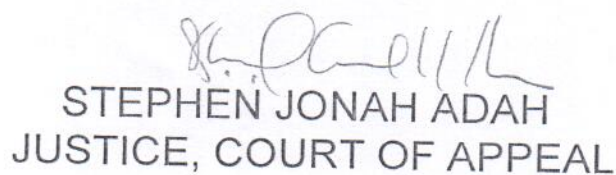 STEPHEN JONAH ADAH
JUSTICE, COURT OF APPEAL